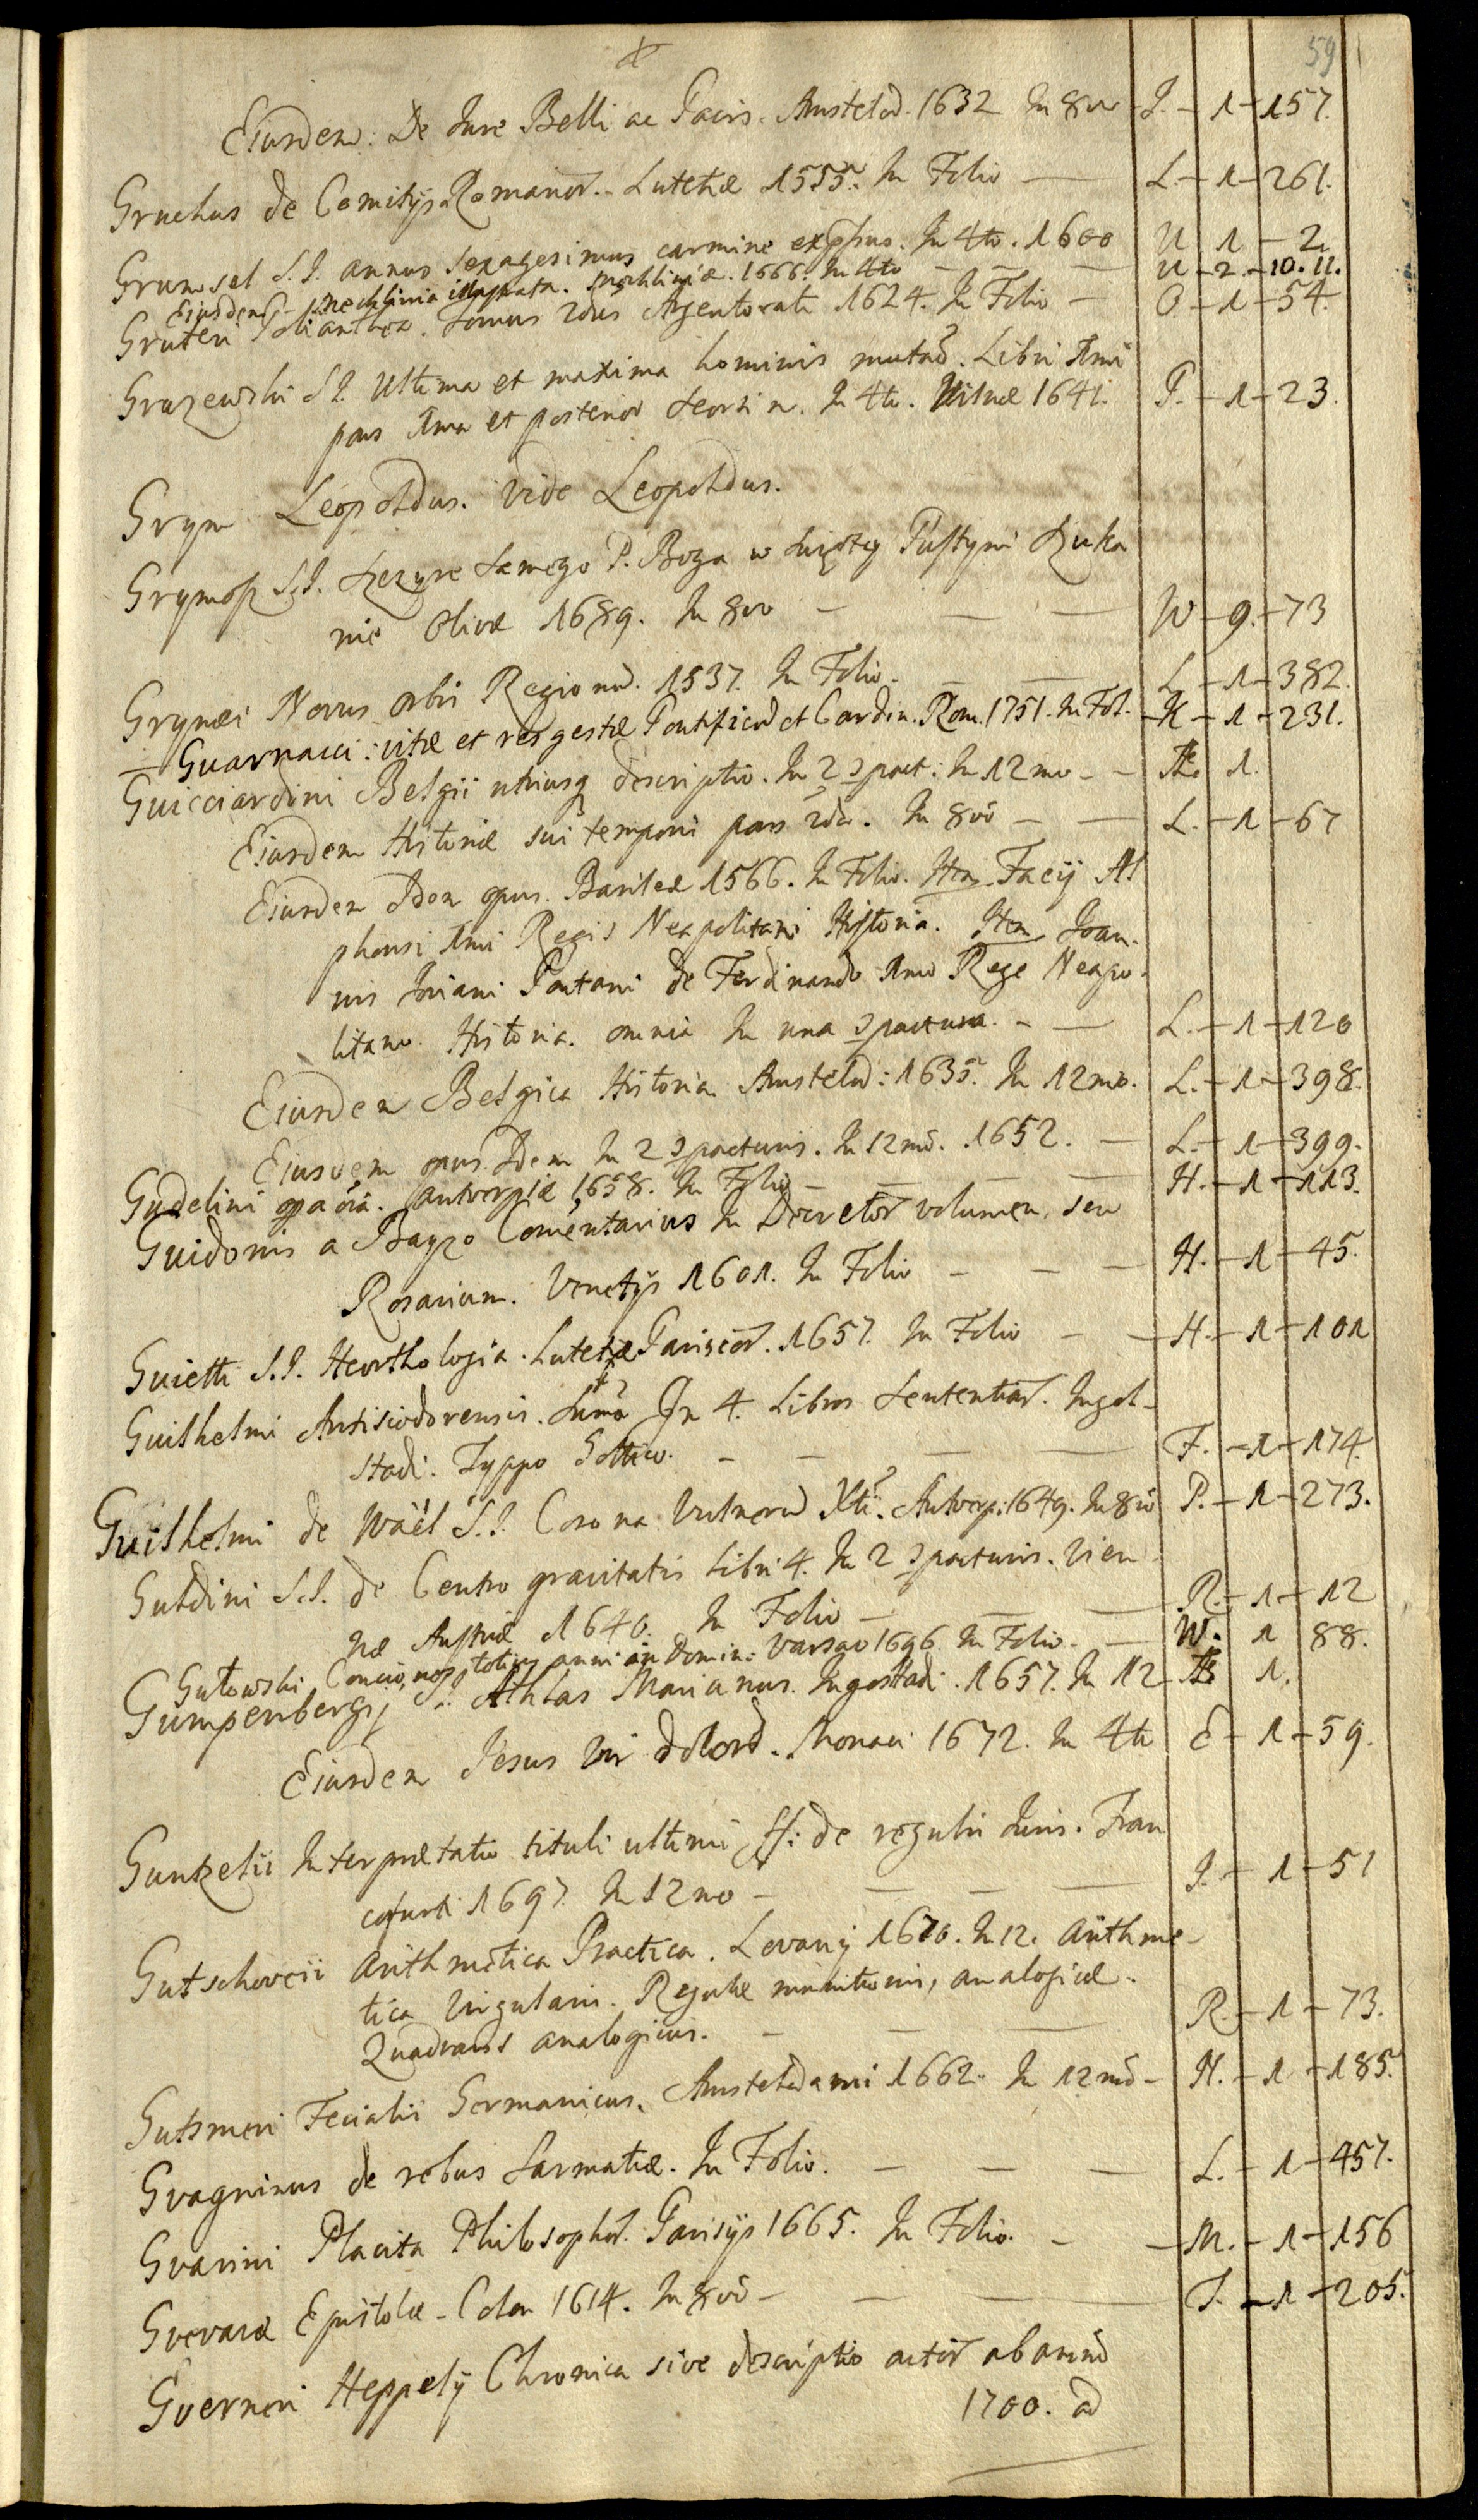 59
Eiusdem: De Jure Belli ac Pacis. Amstelod. 1632 In 8vo J. - 1 - 157.
Gruchus de Comitijs Romanor. Lutetiæ 1555. In Folio — L. - 1 - 261.
Grumsel S.J. annus sexagesimus carmine expssus. In 4to. 1600 U 1 - 2
Eiusdem Mechlinia illustrata. Mechliniæ. 1666. In 4to — U - 2. - 10. 11.
Gruteri Polianthea. Tomus 2dus Argentorati 1624. In Folio — O - 1 - 54.
Gruzewski S.J. Ultima et maxima hominis mutaō. Libri 1mi
pars 1ma et posterior seorsim. In 4to. Vilnæ 1641. P. - 1 - 23.
Grym Leopoldus. Vide Leopoldus.
Grymosz S.J. Szczyre samego P. Boga w swiętey Pustyni Szuka
nie Olivæ 1689. In 8vo — W - 9. - 73
Grynæi Novus orbis Regionū. 1537. In Folio. — L - 1 - 382.
— Guarnacci: vitæ et res gestæ Pontificū et Cardin. Rom. 1751. In Fol. K - 1 - 231.
Guicciardini Belgii utriusq descriptio. In 2 Ɔpact: In 12mo - - 1.
Eiusdem Historiæ sui temporis pars 2da. In 8vō — L. - 1 - 67
Eiusdem Idem opus. Basileæ 1566. In Folio. Item Facij Al
phonsi 1mi Regis Neapolitani Historia. Item Joan-
nis Joviani Pontani de Ferdinando 1mo Rege Neapo-
litano Historia. omnia In una Ɔpactura. - — L. - 1 - 120
Eiusdem Belgica Historia Amstelod: 1635. In 12mo. L. - 1 - 398.
Eiusdem opus Idem In 2 Ɔpacturis. In 12mō. 1652. — L. - 1 - 399.
Gudelini opa oīa. Antverpiæ 1658. In Folio — H. - 1 - 113.
Guidonis a Bayzo Comentarius In Decretor volumen, seu
Rosarium. Venetijs 1601. In Folio - — H. - 1 - 45.
Guietti S.J. Heorthologia. Lutetiæ Parisior. 1657. In Folio - — H. - 1 - 101
Guilhelmi Antisiodorensis. Suma In 4. Libros Sententiar. Ingol-
stadi. Typpo Gottico. - — F. - 1 - 174.
Guilhelmi de Wäel S.J. Corona Vulnerū Xti. Antverp: 1649. In 8vō P. - 1 - 273.
Guldini S.J. de Centro gravitatis Libri 4. In 2 Ɔpacturis. Vien
næ Austriæ 1640. In Folio — R. - 1 - 12
Gutowski Conciones totius anni in Domin: Varsav 1696. In Folio. — W. 1 88.
Gumpenbergij S.J. Athlas Marianus. Ingolstadi. 1657. In 12 1.
Eiusdem Jesus Vir dolorū. Monaci 1672. In 4to E - 1 - 59.
Guntzelii Interpretatio tituli ultimi ff: de regulis Juris. Fran
cofurti 1697. In 12mo — J. - 1 - 51
Gutschovcii Arithmetica Practica. Lovanij 1670. In 12. Arithme-
tica Virgularis. Regulæ munitionis, analogicæ.
Quadrans analogicus. — R. - 1 - 73.
Gutsmeri Fecialis Germanicus. Amstelodami 1662. In 12mō - N. - 1 - 185.
Gvagninus de rebus Sarmatiæ. In Folio. — L. - 1 - 457.
Gvarini Placita Philosophor. Parisijs 1665. In Folio. - — M. - 1 - 156
Gvevaræ Epistolæ - Colon 1614. In 8vō - — S. - 1 - 205.
Gverneri Heppelij Chronica sive descriptio actor ab anno
1700. ad